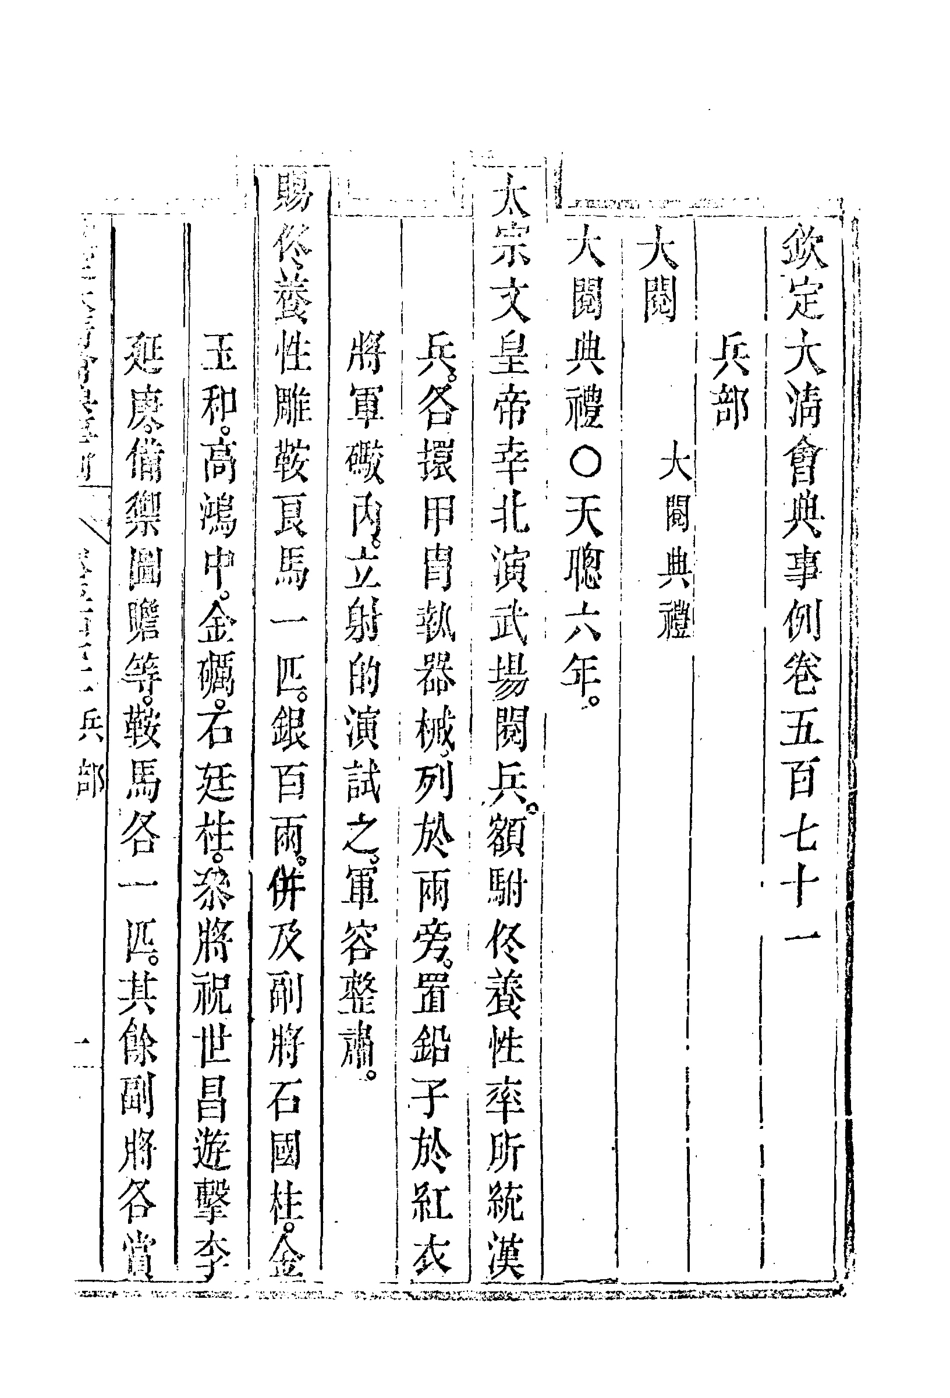 欽定大清會典事例卷五百七十一
兵部
大閱
大閱典禮
大閱典禮○天聰六年。
太宗文皇帝幸北演武場閱兵。額駙佟養性率所統漢
兵。各擐甲胄執器械。列於兩旁。置鉛子於紅衣
將軍礮內。立射的演試之。軍容整肅。
賜佟養性雕鞍良馬一匹。銀百兩。併及副將石國柱。金
玉和。高鴻中。金礪。石廷柱。叅將祝世昌遊擊李
延庚。備禦圖瞻等。鞍馬各一匹。其餘副將各賞
兵部